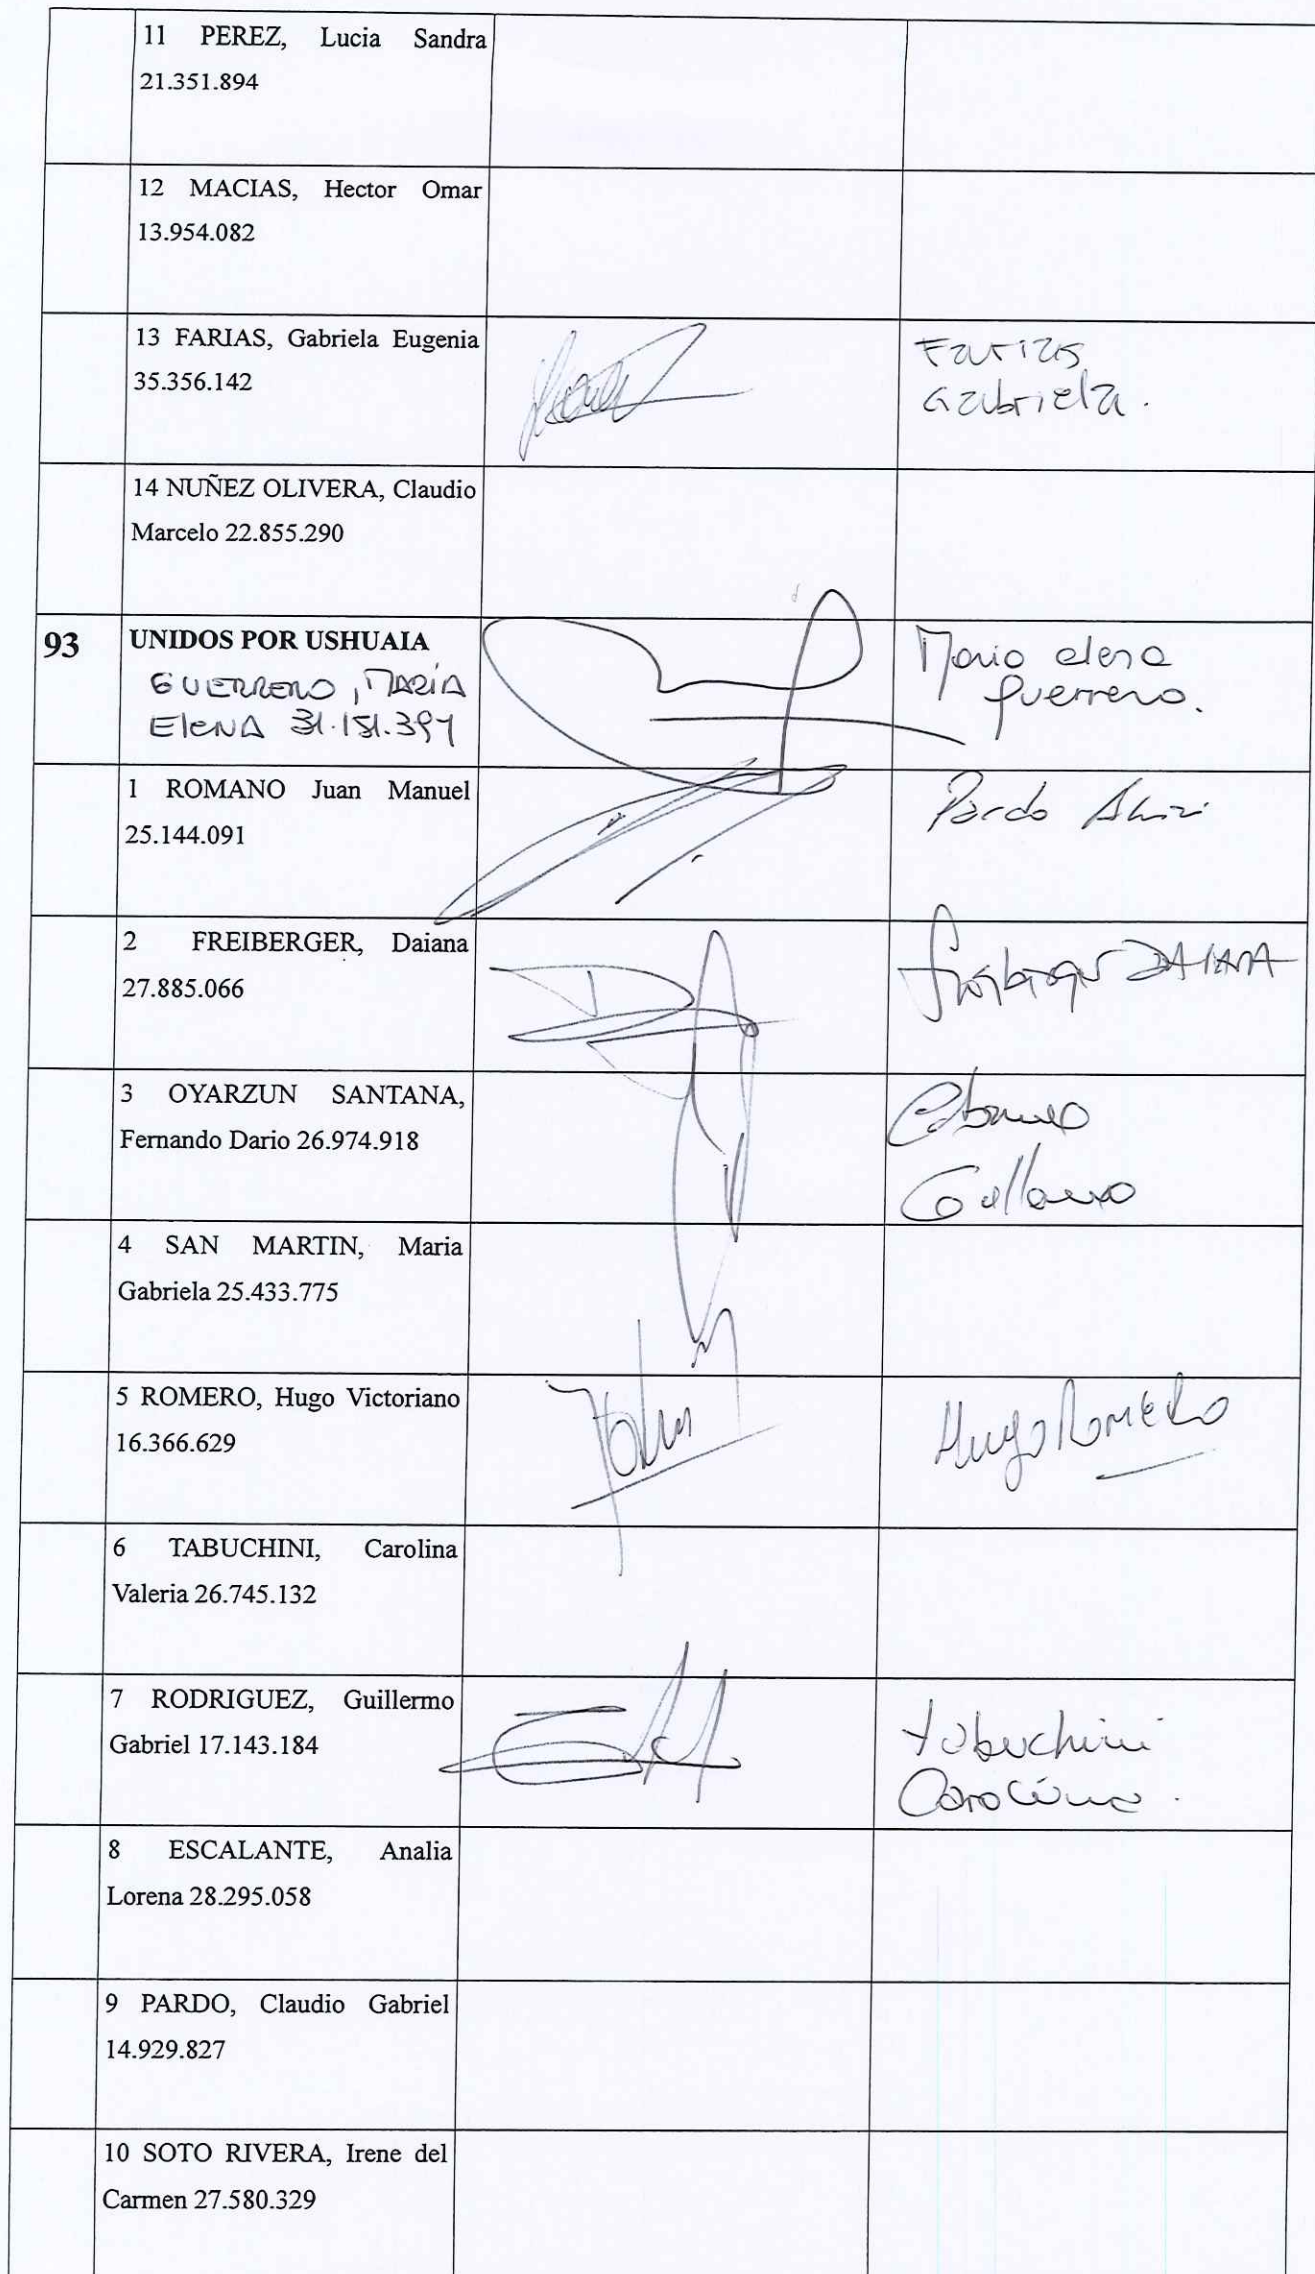 11 PEREZ, Lucia Sandra
21.351.894
12 MACIAS, Hector Omar
13.954.082
13 FARIAS, Gabriela Eugenia
35.356.142
Farias
Gabriela.
14 NUÑEZ OLIVERA, Claudio
Marcelo 22.855.290
93 UNIDOS POR USHUAIA
GUERRERO, MARÍA
ELENA 31.151.391
Maria elena
guerrero.
1 ROMANO Juan Manuel
25.144.091
Pardo
2 FREIBERGER, Daiana
27.885.066
Freiberger DAIANA
3 OYARZUN SANTANA,
Fernando Dario 26.974.918
4 SAN MARTIN, Maria
Gabriela 25.433.775
5 ROMERO, Hugo Victoriano
16.366.629
Hugo Romero
6 TABUCHINI, Carolina
Valeria 26.745.132
7 RODRIGUEZ, Guillermo
Gabriel 17.143.184
tabuchini
Carolina.
8 ESCALANTE, Analia
Lorena 28.295.058
9 PARDO, Claudio Gabriel
14.929.827
10 SOTO RIVERA, Irene del
Carmen 27.580.329